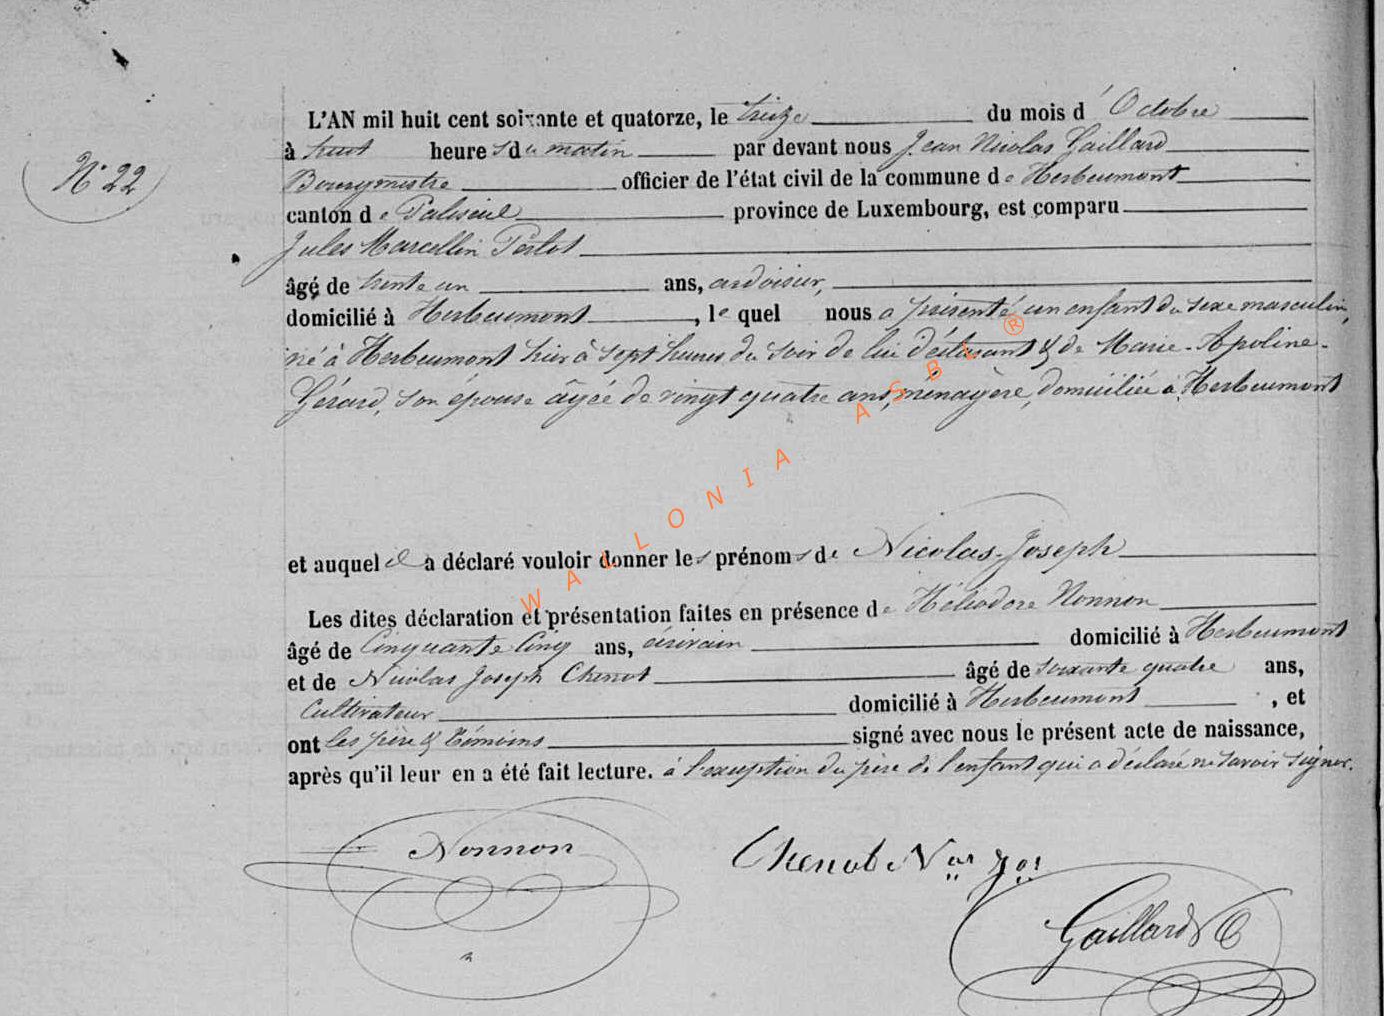 N° 22
L'AN mil huit cent soixante et quatorze, le treize du mois d'Octobre
à huit heures du matin par devant nous Jean Nicolas Gaillard
Bourgmestre officier de l'état civil de la commune de Herbeumont
canton de Paliseul province de Luxembourg, est comparu
Jules Marcellin Perlot
âgé de trente un ans, ardoisier,
domicilié à Herbeumont, le quel nous a présenté un enfant du sexe masculin,
né à Herbeumont hier à sept heures du soir de lui déclarant & de Marie-Apoline-
Gérard, son épouse âgée de vingt quatre ans, ménagère, domiciliée à Herbeumont
et auquel il a déclaré vouloir donner les prénoms de Nicolas-Joseph
Les dites déclaration et présentation faites en présence de Héliodore Nonnon
âgé de Cinquante Cinq ans, écrivain domicilié à Herbeumont
et de Nicolas Joseph Chenot âgé de soixante quatre ans,
Cultivateur domicilié à Herbeumont, et
ont les père & témoins signé avec nous le présent acte de naissance,
après qu'il leur en a été fait lecture. à l'exception du père de l'enfant qui a déclaré ne savoir signer.
Nonnon
Chenot Nas Jos
Gaillard
WALLONIA ASBL ®